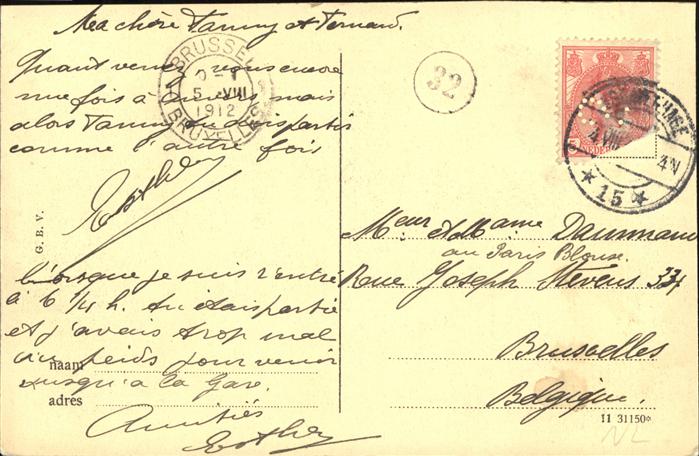 Ma chère Fanny et Fernand.
Quand venez vous encore
une fois à mais
alors Fanny
comme l'autre fois
Esther
Lorsque je suis r'entré
à 6 1/4 h. tu étais partie
et j'avais trop mal
au pieds pour venir
jusqu'a la Gare.
Amitiés
Esther
naam
adres
G. B. V.
BRUSSEL
5 VIII
1912
BRUXELLES
32
NEDER
4 VIII
4 N
* 15 *
Meur & Mame Daumman
au Paris Blouse.
Rue Joseph Stevens 33
Bruxelles
Belgique.
11 31150*
NL